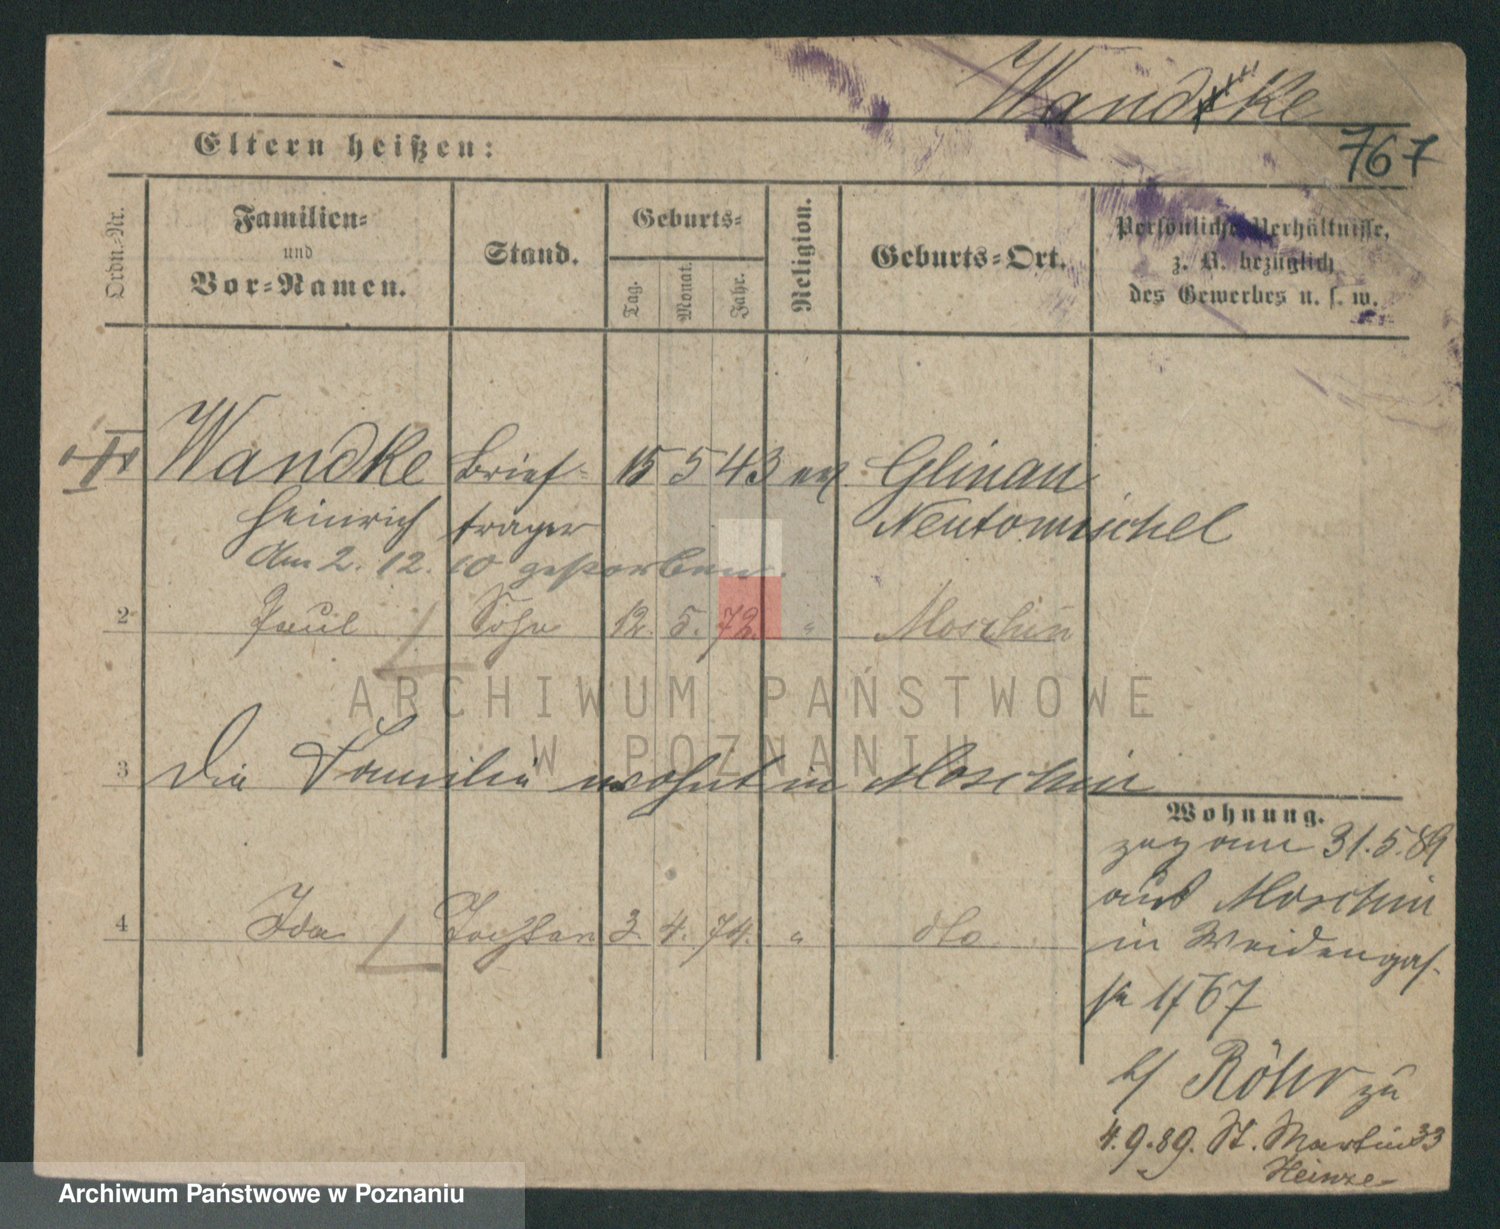 Wandke
767
Eltern heißen:
Ordn.-Nr.
Familien-
und
Vor-Namen.
Stand.
Geburts-
Tag.
Monat.
Jahr.
Religion.
Geburts-Ort.
Persönliche Verhältnisse,
z. B. bezüglich
des Gewerbes u. s. w.
Wandke Brief- 15 5 43 ev. Glinau
Heinrich träger Neutomischel
Am 2. 12. 10 gestorben.
2 Paul Sohn 12. 5. 72. " Moschin
ARCHIWUM PAŃSTWOWE
W POZNANIU
3 Die Familie wohnt in Moschin
Wohnung.
zog am 31.5.89
aus Moschin
in Weidengas-
se 1f67
4 Ida Tochter 3. 4. 74. " dto
b/ Röhr zu
4.9.89. St. Martin 33
Heinze
Archiwum Państwowe w Poznaniu